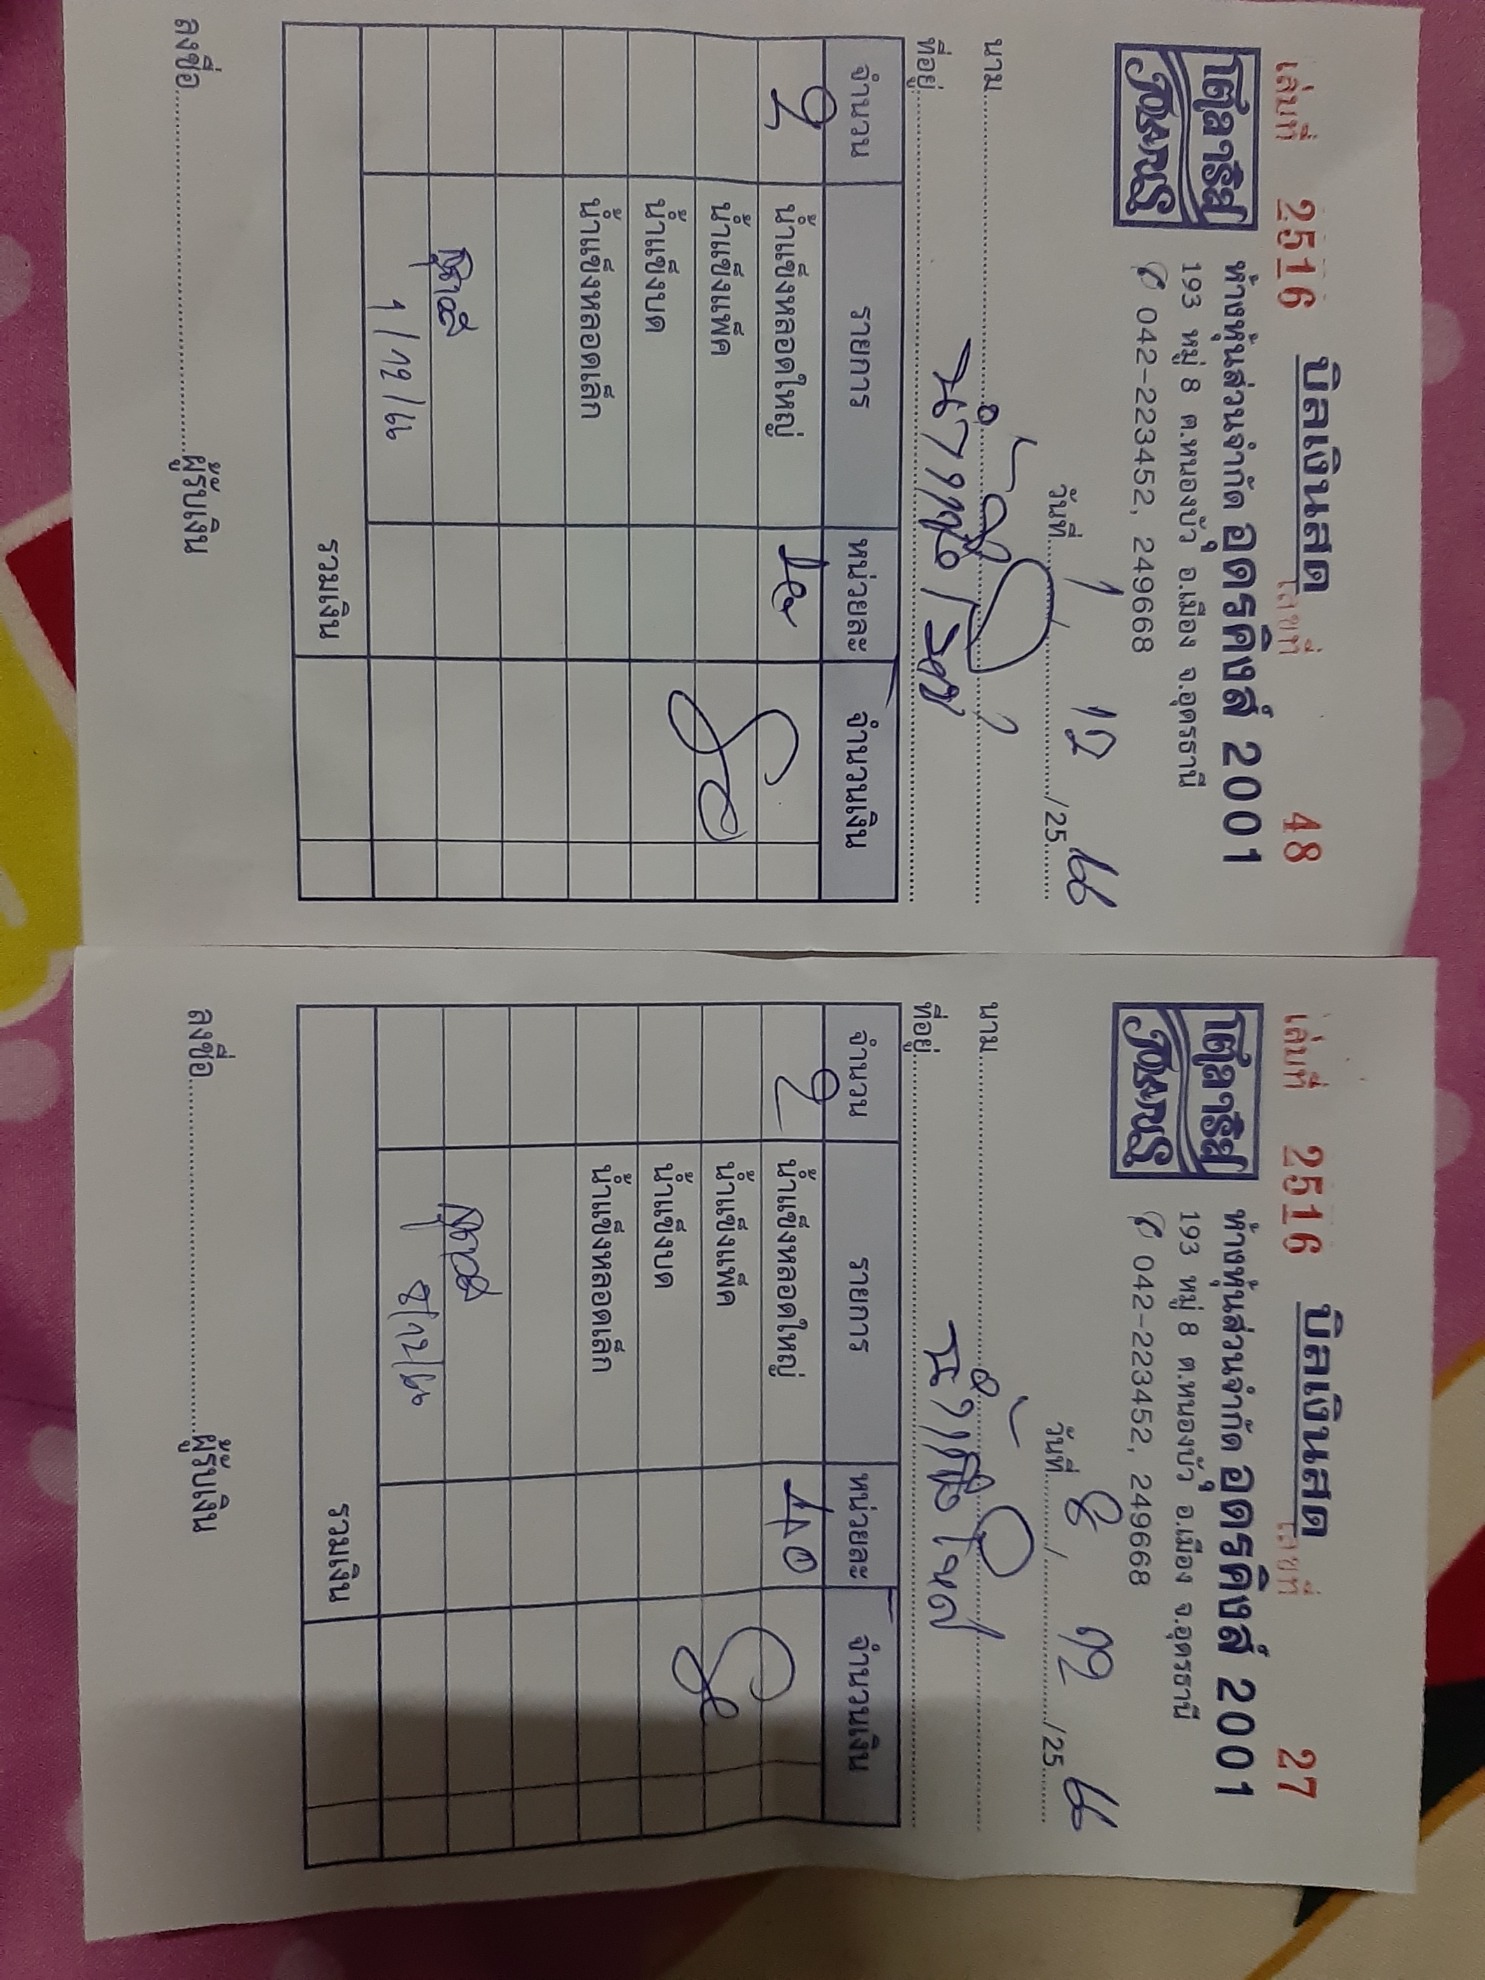 เล่มที่ 2516 บิลเงินสด เลขที่ 48
โตลาริส
ห้างหุ้นส่วนจำกัด อุดรคิงส์ 2001
193 หมู่ 8 ต.หนองบัว อ.เมือง จ.อุดรธานี
042-223452, 249668
วันที่ 1 / 12 /25 66
นาม
ที่อยู่
จำนวน รายการ หน่วยละ จำนวนเงิน
2 น้ำแข็งหลอดใหญ่ 40 80
น้ำแข็งแพ็ค
น้ำแข็งบด
น้ำแข็งหลอดเล็ก
1/12/66
รวมเงิน
ลงชื่อ ผู้รับเงิน
เล่มที่ 2516 บิลเงินสด เลขที่ 27
โตลาริส
ห้างหุ้นส่วนจำกัด อุดรคิงส์ 2001
193 หมู่ 8 ต.หนองบัว อ.เมือง จ.อุดรธานี
042-223452, 249668
วันที่ 8 / 12 /25 66
นาม
ที่อยู่
จำนวน รายการ หน่วยละ จำนวนเงิน
2 น้ำแข็งหลอดใหญ่ 40 80
น้ำแข็งแพ็ค
น้ำแข็งบด
น้ำแข็งหลอดเล็ก
8/12/66
รวมเงิน
ลงชื่อ ผู้รับเงิน